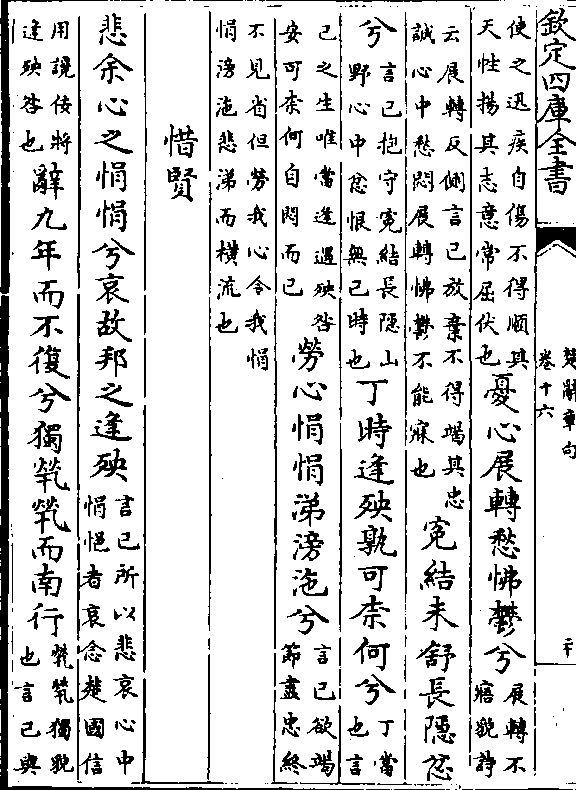 欽定四庫全書
楚辭章句
卷十六
二十
使之迅疾自傷不得順其天性揚其志意常屈伏也憂心展轉愁怫鬱兮展轉不寤貌詩
云展轉反側言己放棄不得竭其忠誠心中愁悶展轉怫鬱不能寐也寃結未舒長隱忿
兮言己抱守寃結長隱山野心中忿恨無已時也丁時逢殃孰可柰何兮丁當也言
己之生唯當逢遇殃咎安可柰何自悶而已勞心悁悁涕滂沲兮言己欲竭節盡忠終
不見省但勞我心令我悁悁滂沲悲涕而橫流也
惜賢
悲余心之悁悁兮哀故邦之逢殃言己所以悲哀心中悁悒者哀念楚國信
用讒佞將逢殃咎也辭九年而不復兮獨煢煢而南行煢煢獨貌也言己與